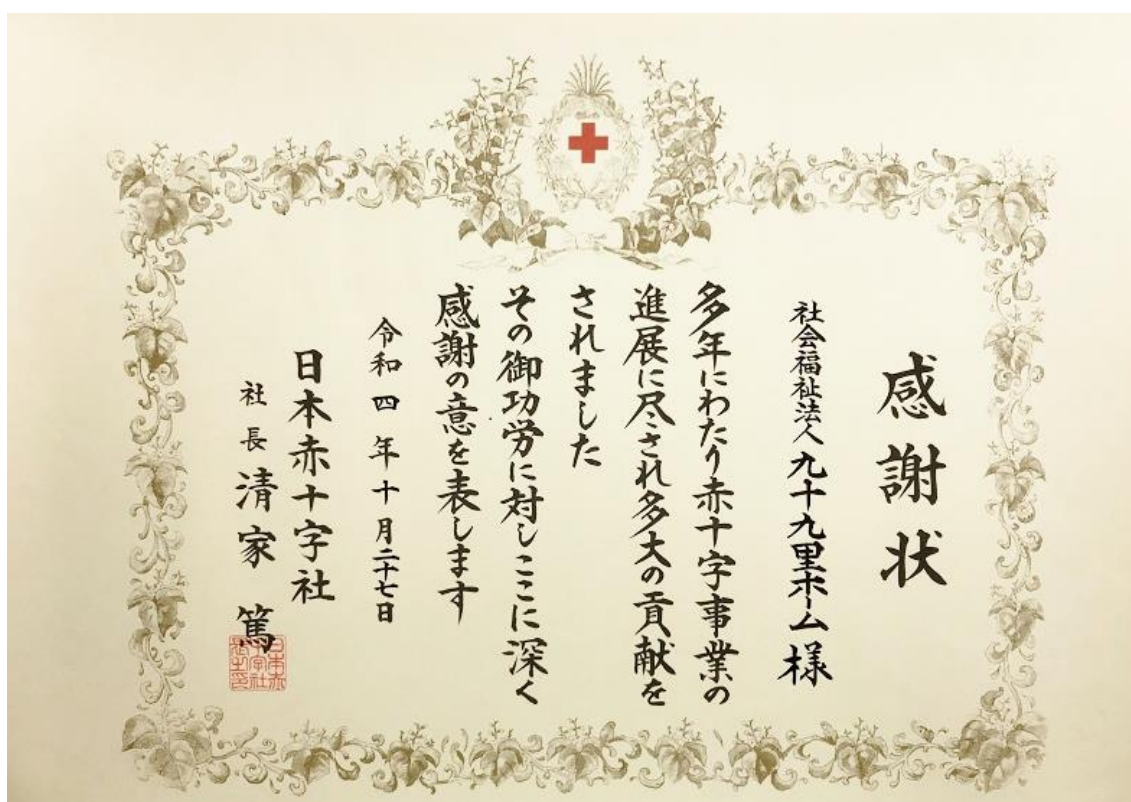 感謝状
社会福祉法人 九十九里ホーム 様
多年にわたり赤十字事業の
進展に尽され多大の貢献を
されました
その御功労に対しここに深く
感謝の意を表します
令和四年十月二十七日
日本赤十字社
社長 清家 篤